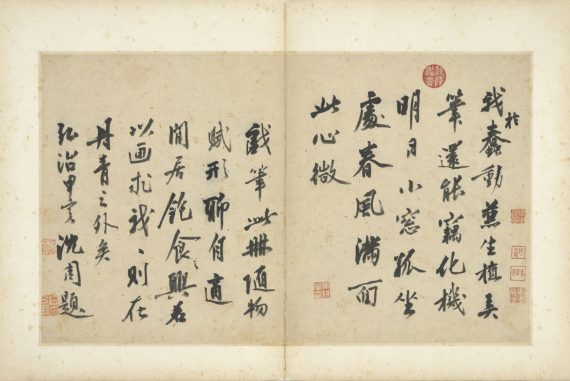 我於蠢動兼生植弄
筆還能竊化機
明月小窗孤坐
處春風滿面
此心微
戲筆此冊隨物
賦形聊自適
閒居飽食之興若
以画求我〻則在
丹青之外矣
弘治甲寅沈周題